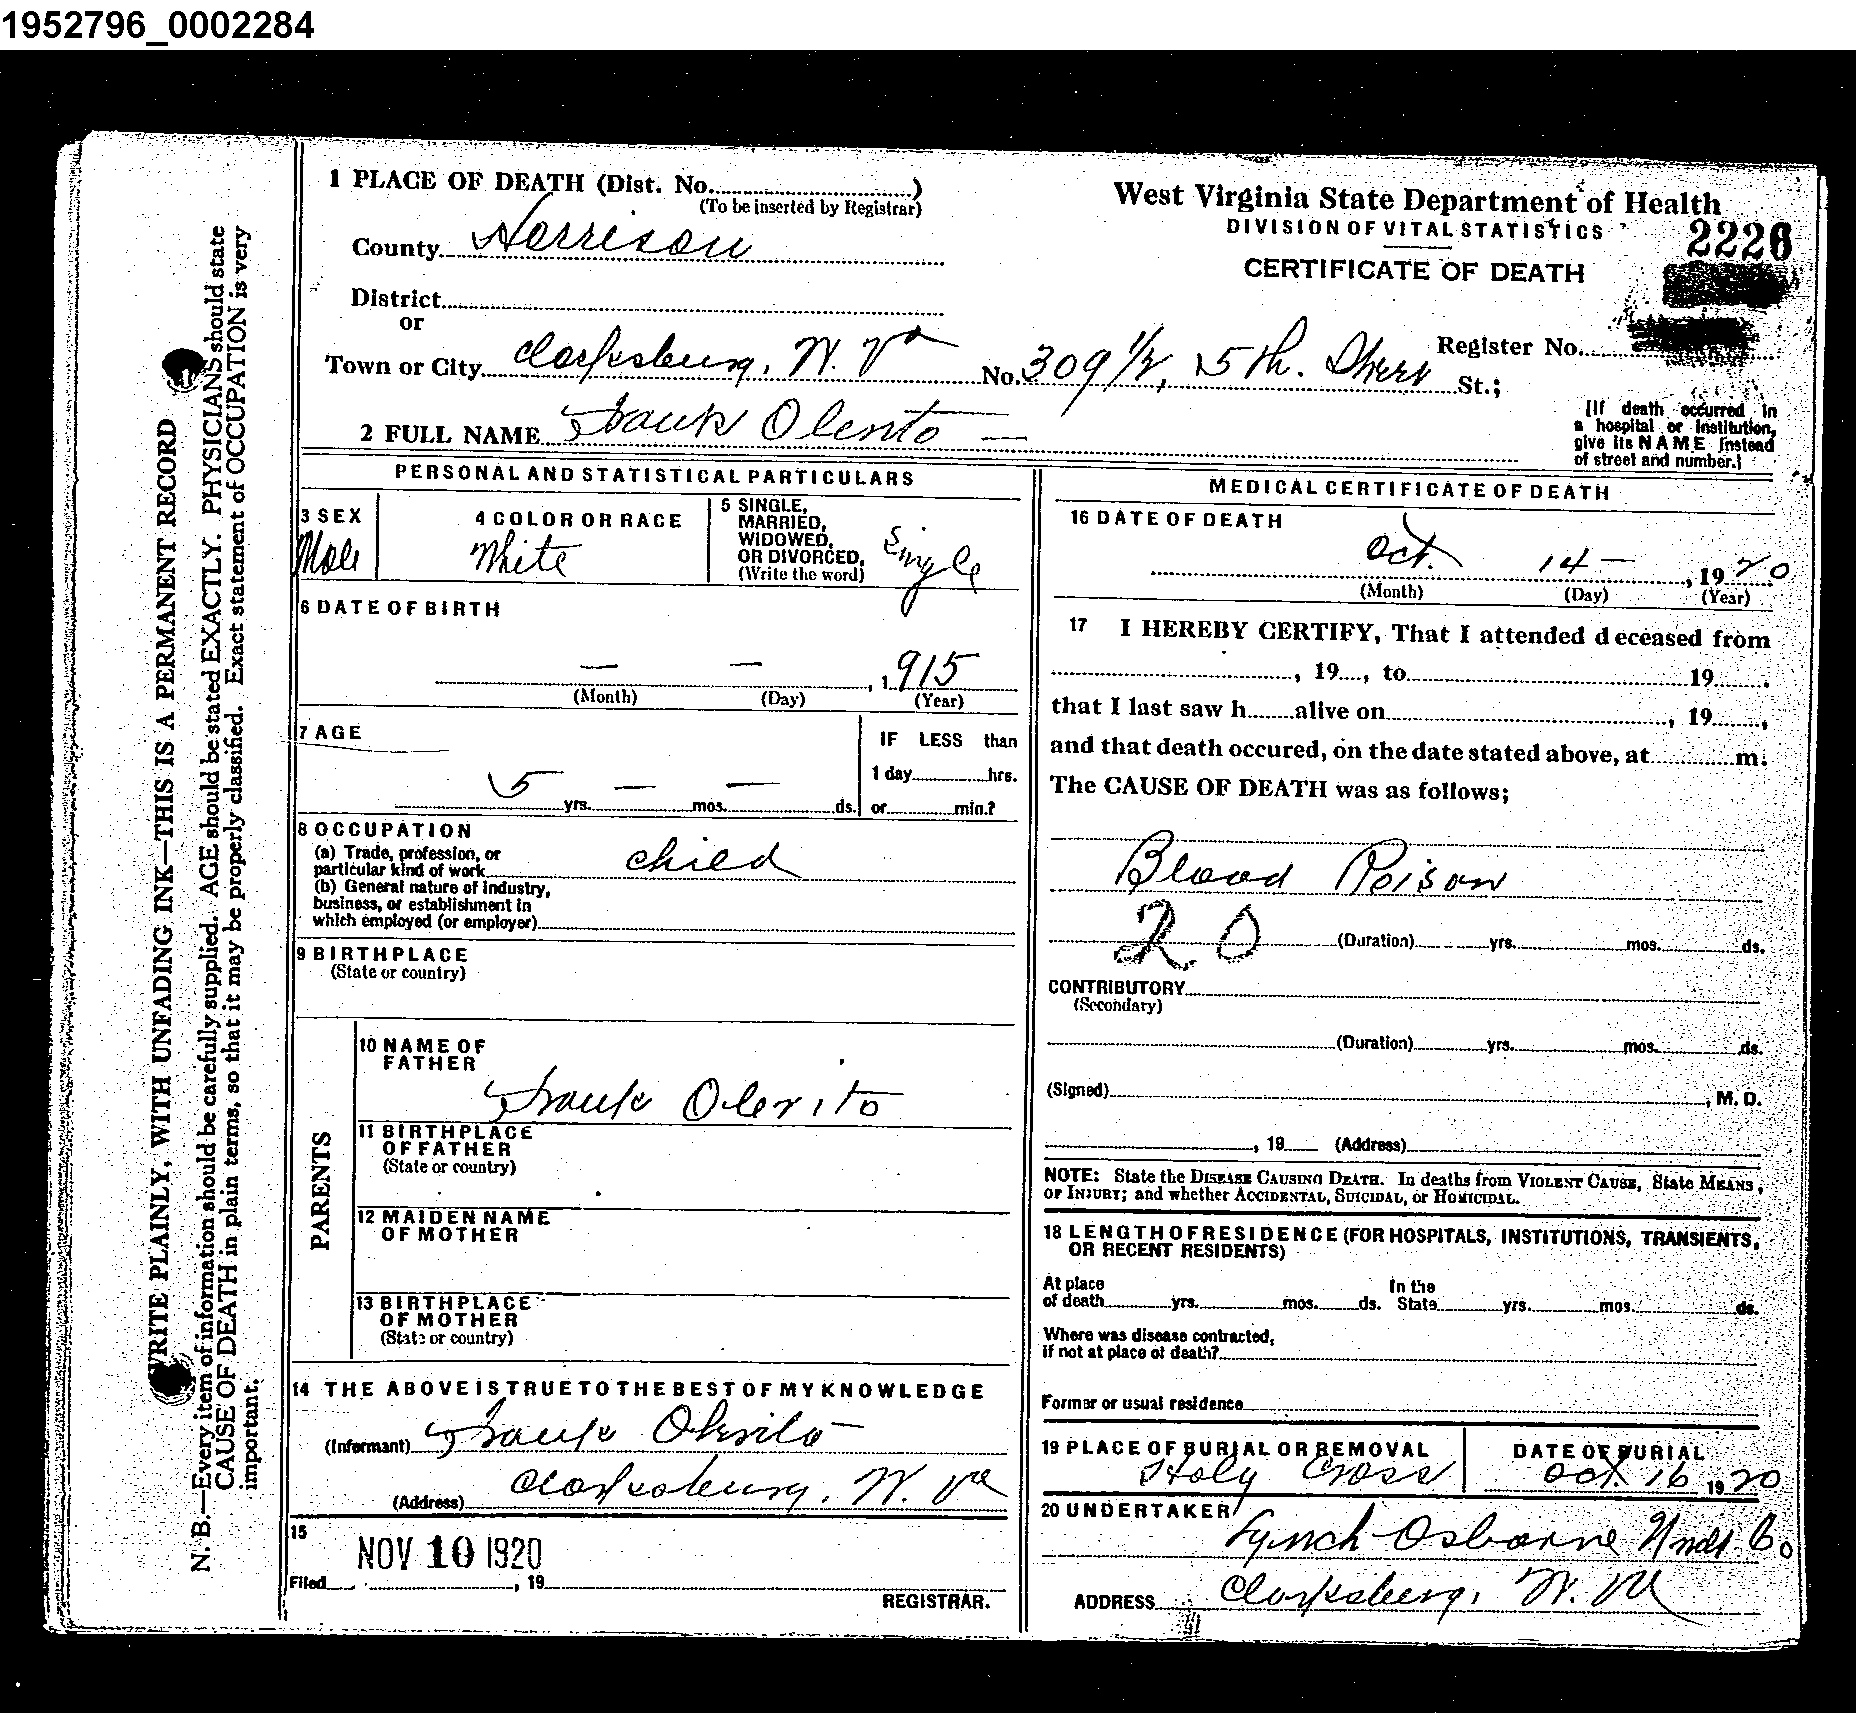 1952796_0002284
WRITE PLAINLY, WITH UNFADING INK—THIS IS A PERMANENT RECORD
N. B.—Every item of information should be carefully supplied. AGE should be stated EXACTLY. PHYSICIANS should state
CAUSE OF DEATH in plain terms, so that it may be properly classified. Exact statement of OCCUPATION is very
important.
1 PLACE OF DEATH (Dist. No. )
(To be inserted by Registrar)
County Harrison
District
or
Town or City Clarksburg, W. Va
No. 309 1/2, 5th. Street St.;
2 FULL NAME Frank Olerito —
West Virginia State Department of Health
DIVISION OF VITAL STATISTICS
2226
CERTIFICATE OF DEATH
Register No.
[If death occurred in
a hospital or institution,
give its NAME instead
of street and number.]
PERSONAL AND STATISTICAL PARTICULARS
3 SEX
Male
4 COLOR OR RACE
White
5 SINGLE,
MARRIED,
WIDOWED,
OR DIVORCED,
(Write the word)
Single
6 DATE OF BIRTH
— — , 1915
(Month) (Day) (Year)
7 AGE
5 yrs. — mos. — ds.
IF LESS than
1 day hrs.
or min.?
8 OCCUPATION
(a) Trade, profession, or
particular kind of work child
(b) General nature of industry,
business, or establishment in
which employed (or employer)
9 BIRTHPLACE
(State or country)
PARENTS
10 NAME OF
FATHER
Frank Olerito
11 BIRTHPLACE
OF FATHER
(State or country)
12 MAIDEN NAME
OF MOTHER
13 BIRTHPLACE
OF MOTHER
(State or country)
14 THE ABOVE IS TRUE TO THE BEST OF MY KNOWLEDGE
(Informant) Frank Olerito
(Address) Clarksburg, W. Va
15
NOV 10 1920
Filed , 19
REGISTRAR.
MEDICAL CERTIFICATE OF DEATH
16 DATE OF DEATH
Oct. 14 — , 1920
(Month) (Day) (Year)
17 I HEREBY CERTIFY, That I attended deceased from
, 19 , to 19 .
that I last saw h alive on , 19 ,
and that death occured, on the date stated above, at m.
The CAUSE OF DEATH was as follows;
Blood Poison
20 (Duration) yrs. mos. ds.
CONTRIBUTORY
(Secondary)
(Duration) yrs. mos. ds.
(Signed) , M. D.
, 19 (Address)
NOTE: State the DISEASE CAUSING DEATH. In deaths from VIOLENT CAUSE, State MEANS,
OF INJURY; and whether ACCIDENTAL, SUICIDAL, or HOMICIDAL.
18 LENGTH OF RESIDENCE (FOR HOSPITALS, INSTITUTIONS, TRANSIENTS,
OR RECENT RESIDENTS)
At place
of death yrs. mos. ds.
In the
State yrs. mos. ds.
Where was disease contracted,
if not at place of death?
Former or usual residence
19 PLACE OF BURIAL OR REMOVAL
Holy Cross
DATE OF BURIAL
Oct. 16 1920
20 UNDERTAKER
Lynch Osborne Undt Co
ADDRESS Clarksburg, W. Va